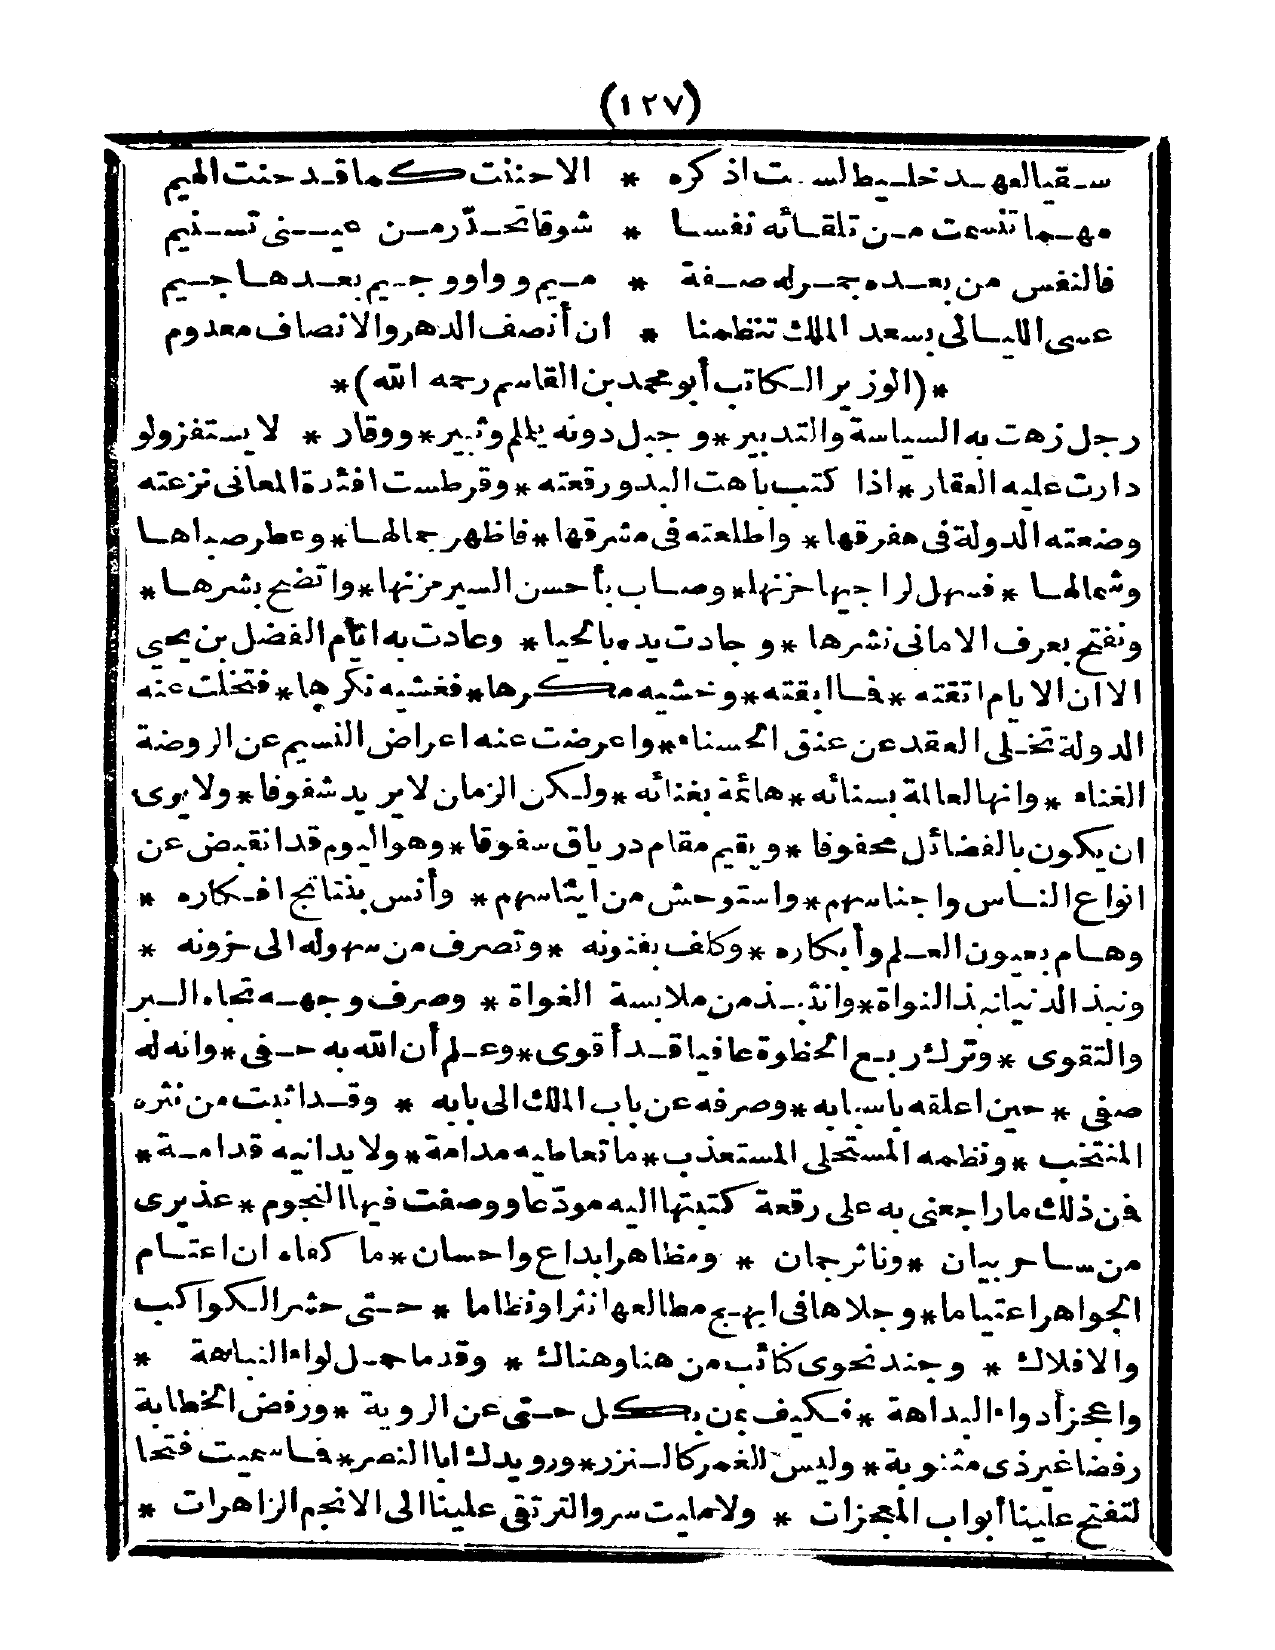 (١٢٧)
سقيا لعهد خليط لست اذكره * الاحننت كما قد حنت الهيم
مهما تنسمت من تلقائه نفسا * شوقا تحدّر من عينى تسنيم
فالنفس من بعده جمر له صفة * ميم و واو وجيم بعدها جيم
عسى الليالى بسعد الملك تنظمنا * ان أنصف الدهر والانصاف معدوم
*(الوزير الكاتب أبو محمد بن القاسم رحمه الله)*
رجل زهت به السياسة والتدبير * وجبل دونه يلملم وثبير * ووقار * لا يستفز ولو
دارت عليه العقار * اذا كتب باهت البدور رقعته * وقرطست افئدة المعانى نزعته
وضعته الدولة فى مفرقها * واطلعته فى مشرقها * فاظهر جمالها * وعطر صباها
وشمالها * فسهل لراجيها حزنها * وصاب بأحسن السير مزنها * واتضح بشرها *
ونفتح بعرف الامانى نشرها * وجادت يده بالحيا * وعادت به ايّام الفضل بن يحيى
الا ان الايام اتقته * فما ابقته * وخشيه مكرها * فغشيه نكرها * فتخلت عنه
الدولة تخلى العقد عن عنق الحسناء * واعرضت عنه اعراض النسيم عن الروضة
الغناء * وانها لعالمة بسنائه * هائمة بغنائه * ولكن الزمان لا يريد شفوفا * ولا يرى
ان يكون بالفضائل محفوفا * ويقيم مقام درياق سفوفا * وهو اليوم قد انقبض عن
انواع الناس واجناسهم * واستوحش من ايناسهم * وأنس بنتائج افكاره *
وهام بعيون العلم وأبكاره * وكلف بفنونه * وتصرف من سهوله الى حزونه *
ونبذ الدنيا نبذ النواة * وانتبذ من ملابسة الغواة * وصرف وجهه تجاه البر
والتقوى * وترك ربع الحظوة عافيا قد أقوى * وعلم أن الله به حفى * وانه له
صفى * حين اعلقه باسبابه * وصرفه عن باب الملك الى بابه * وقد اثبت من نثره
المنتخب * ونظمه المستحلى المستعذب * ما تعاطيه مدامة * ولا يدانيه قدامة *
فن ذلك ما راجعنى به على رقعة كتبتها اليه مودّعا ووصفت فيها النجوم * عذيرى
من ساحر بيان * وناثر جمان * ومظاهر ابداع واحسان * ما كفاه ان اعتام
الجواهر اعتياما * وجلاها فى ابهج مطالعها نثرا ونظاما * حتى حشر الكواكب
والافلاك * وجند نحوى كتائب من هنا وهناك * وقد ما حمل لواء النباهة *
واعجز أدواء البداهة * فكيف بمن بكل حتى عن الروية * ورفض الخطابة
رفضا غير ذى مثنوية * وليس الغمر كالنزر * ورويدك ابا النصر * فما سميت فتحا
لتفتح علينا أبواب المعجزات * ولا مليت سرو الترتقى علينا الى الانجم الزاهرات *